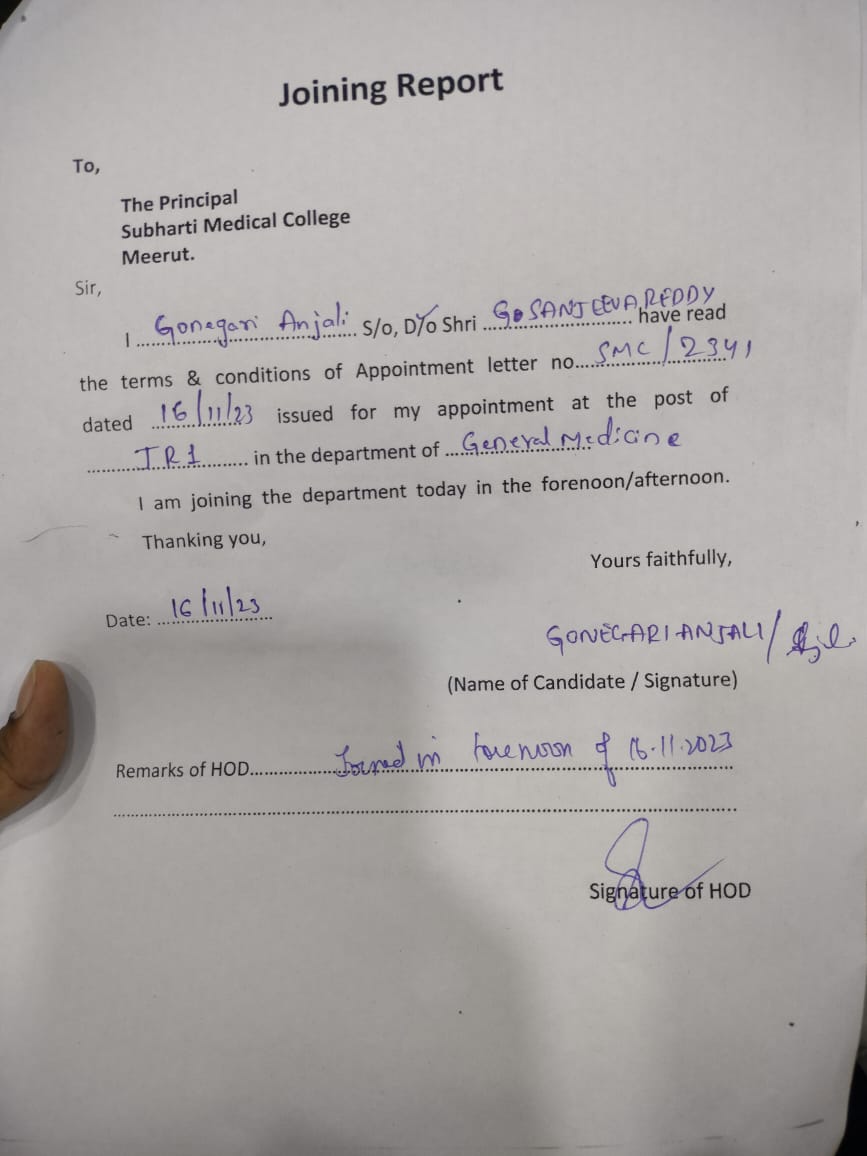 Joining Report
To,
The Principal
Subharti Medical College
Meerut.
Sir,
I Gonegari Anjali S/o, D/o Shri G. SANJEEVA REDDY have read
the terms & conditions of Appointment letter no. SMC/2341
dated 16/11/23 issued for my appointment at the post of
JR1 in the department of General Medicine
I am joining the department today in the forenoon/afternoon.
Thanking you,
Yours faithfully,
Date: 16/11/23
GONEGARI ANJALI/
(Name of Candidate / Signature)
Remarks of HOD Joined in forenoon of 16.11.2023
Signature of HOD